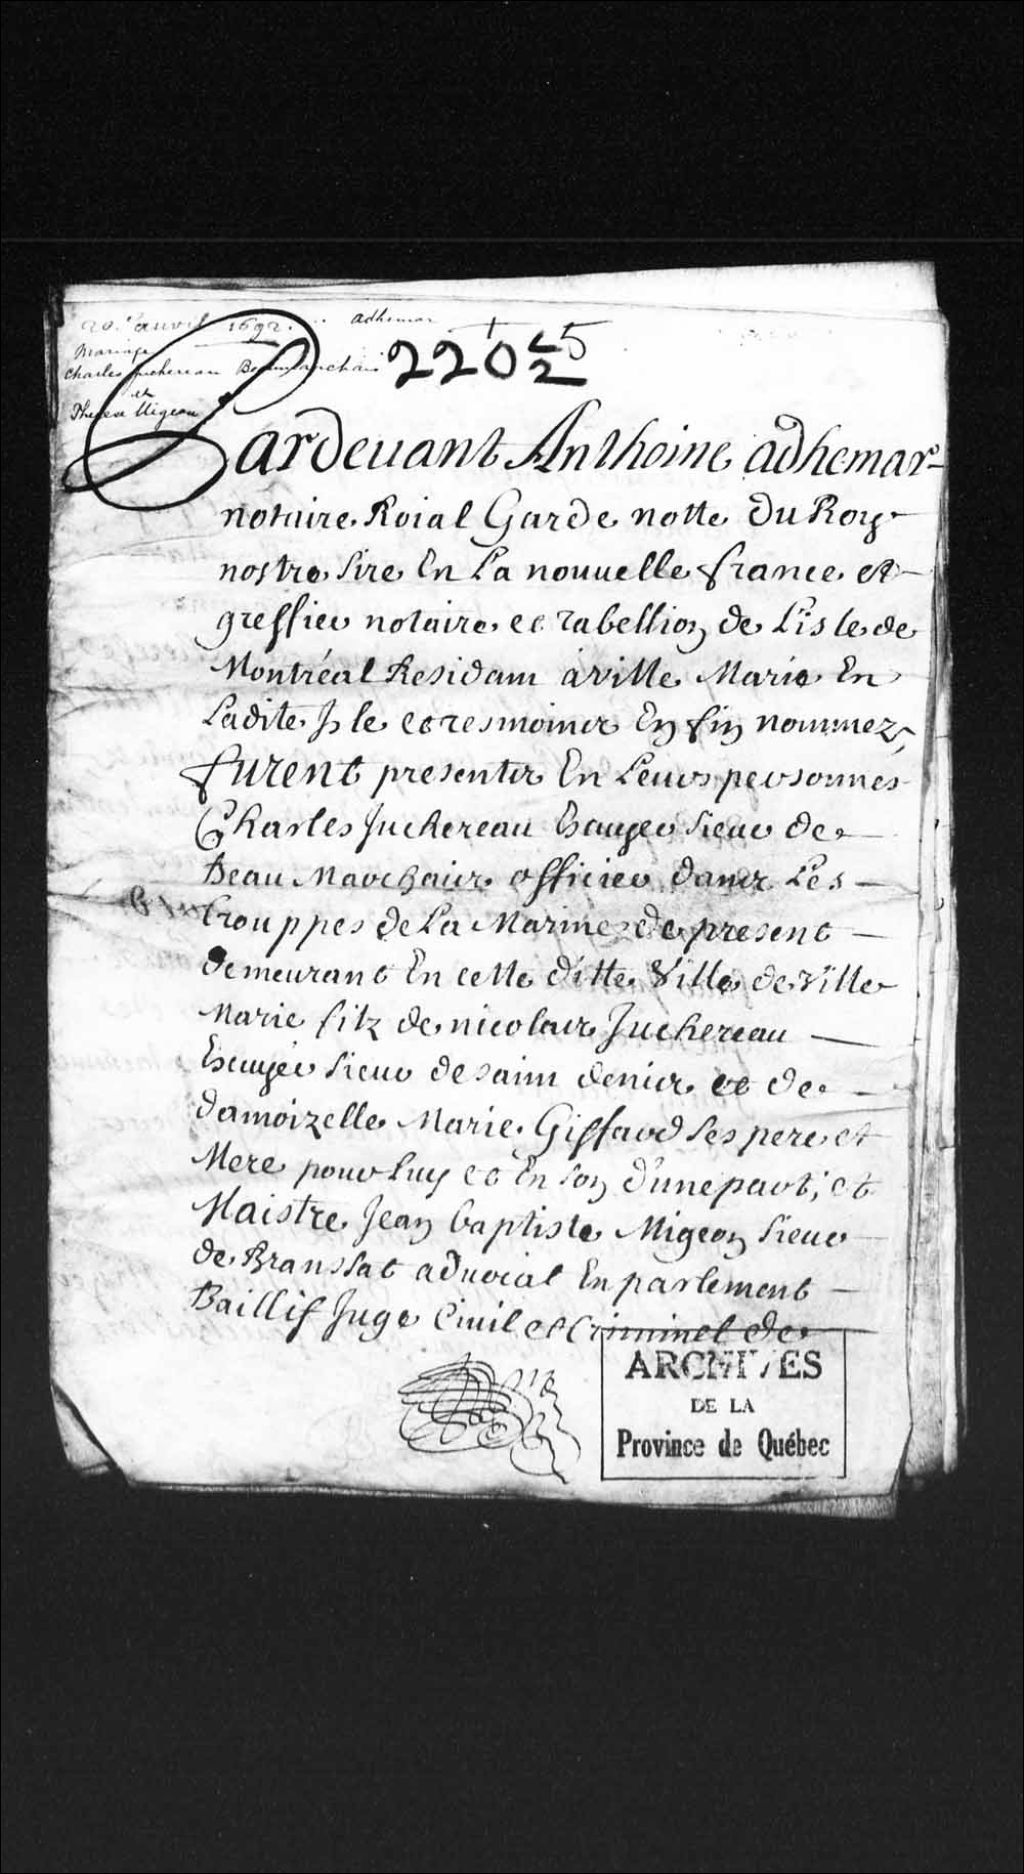 20. avril 1692. .. adhemar
Mariage
Charles Juchereau Beaumarchais
et
Therese Migeon
220 25
2
Pardeuant Anthoine adhemar
notaire Roial Garde notte Du Roy
nostre sire En La nouuelle france et
greffier notaire et Tabellion de L'isle de
Montréal Residant à Ville Marie En
Ladite Isle et tesmoins En fin nommez
furent presents En Leurs personnes
Charles Juchereau Escuyer sieur de
Beau Marchaix officier dans Les
trouppes de La Marine de present
demeurant En cette ditte Ville de Ville
Marie filz de nicolas Juchereau
Escuyer sieur de saint denis et de
damoizelle Marie Giffard ses pere et
Mere pour luy et En son d'une part, et
Maistre Jean baptiste Migeon sieur
de Branssat aduocat En parlement
Baillif Juge Ciuil et Criminel de
ARCHIVES
DE LA
Province de Québec